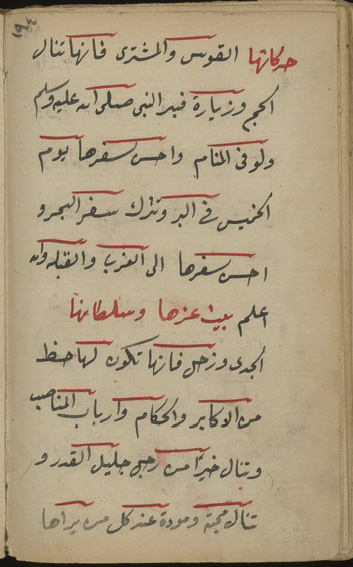 ١٩٤
حركاتها القوس والمشترى فانها تنال
الحج وزيارة قبر النبي صلى الله عليه وسلم
ولو في المنام واحسن سفرها يوم
الخميس في البر وتترك سفر البحر و
احسن سفرها الى الغرب والقبله والله
اعلم بيت عزها وسلطانها
الجدى وزحل فانها تكون لها حظ
من الاكابر والحكام وارباب المناصب
وتنال خيرا من رجل جليل القدر و
تنال محبة ومودة عند كل من يراها